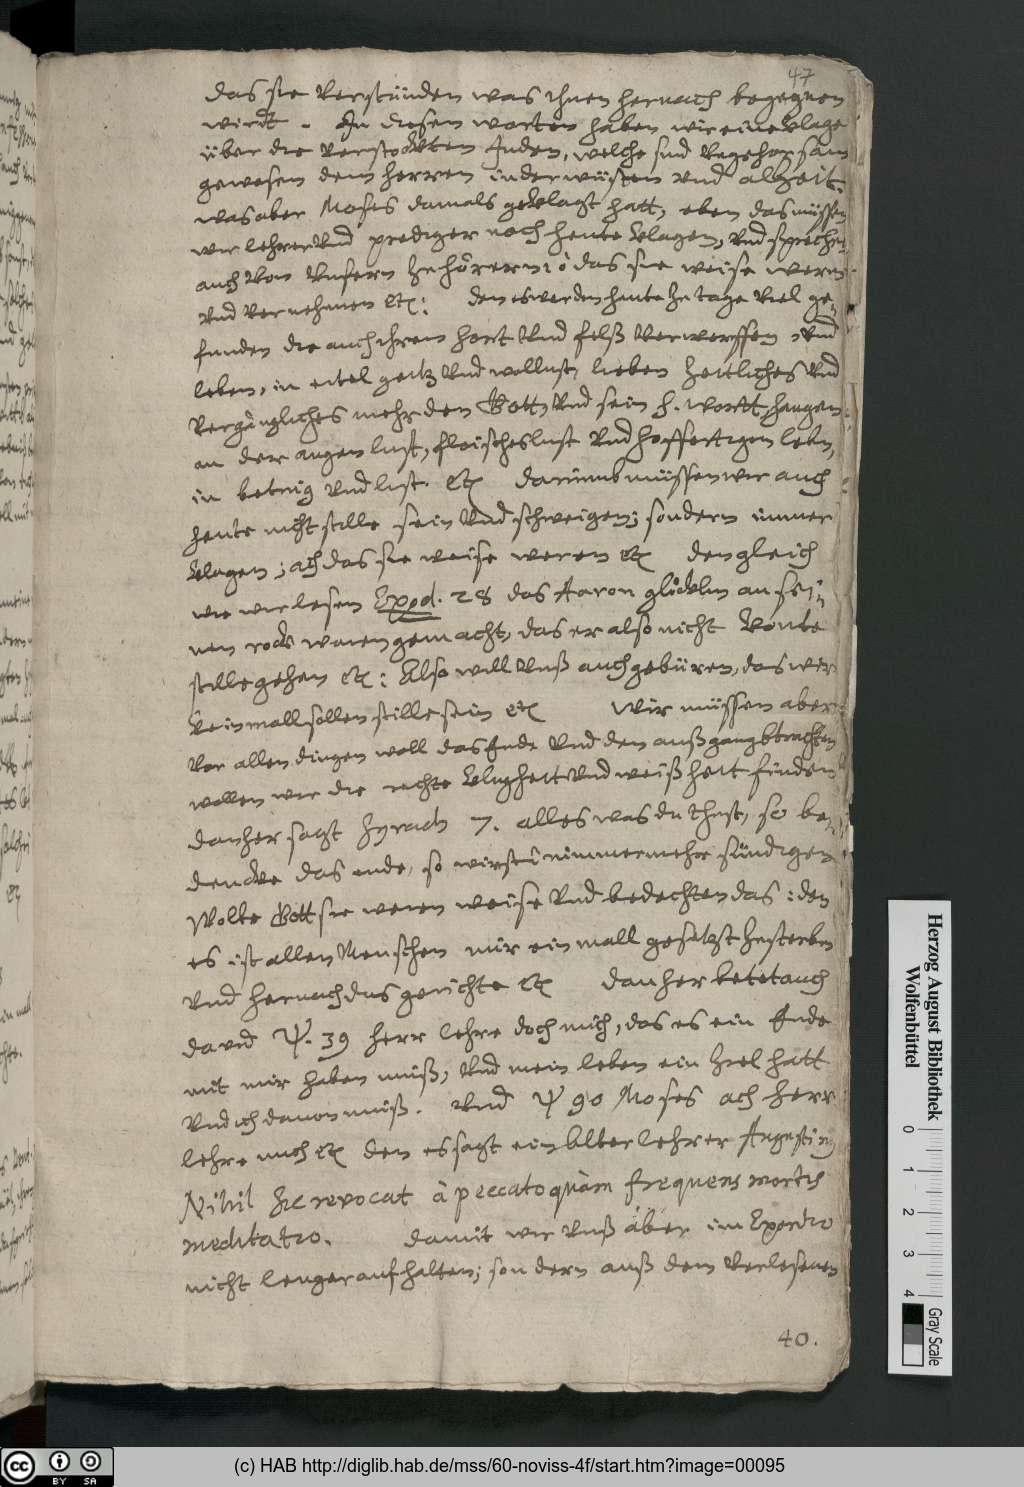 47
das sie Verstünden was ihnen hernach begegnen
wirdt. In diesen worten haben wir eine Klage
über die Verstockten Juden, welche sind Vngehorsam
gewesen dem herren in der wüsten Vnd alzeit.
was aber Moses damals geklagt hatt, eben das müssen
wir lehrer Vnd prediger noch heute klagen, Vnd sprechen
auch Von Vnsern Zuhörern: ô das sie weise weren
Vnd Vernehmen etc: den es werden heute zu tage Viel ge-
funden die auch ihren hort Vnd felß Verwerffen, Vnd
leben, in eitel geitz Vnd wollust, lieben Zeitliches Vnd
Vergängliches mehr den Gott, Vnd sein h. wortt, hangen
an der augen lust, fleischeslust Vnd hoffertigen lebn,
in betrug Vnd list. etc darumb müssen wir auch
heute nicht stille sein Vnd schweigen; sondern immer
klagen; ach das sie weise weren etc den gleich
wie wir lesen Exod. 28 das Aaron glöcklin an sei-
nen rock waren gemacht, das er also nicht Konte
stille gehen etc: Also will Vnß auch gebüren, das wir
Keinmall sollen stille sein etc Wir müssen aber
Vor allen dingen woll das Ende Vnd den außgang btrachten
wollen wir die rechte Klugheit Vnd weißheit finden
danher sagt Syrach 7. alles was du thust, so be-
dencke das ende, so wirstu nimmermehr sündigen
Wolte Gott sie weren weise Vnd bedechten das: den
es ist allen Menschen nur ein mall gesetzt Zusterben
Vnd hernach das gerichte etc danher betet auch
david Ψ. 39 herr lehre doch mich, das es ein Ende
mit mir haben muß, Vnd mein leben ein Ziel hatt
Vnd ich dauon muß. Vnd Ψ 90 Moses ach herr
lehre mich etc den es sagt ein alter lehrer Augustinus
Nihil sic revocat à peccato quàm frequens mortis
meditatio. damit wir Vnß aber im Exordio
nicht lenger aufhalten; sondern auß dem Verlesenen
40.
Herzog August Bibliothek
Wolfenbüttel
0 1 2 3 4
Gray Scale
cc BY SA
(c) HAB http://diglib.hab.de/mss/60-noviss-4f/start.htm?image=00095